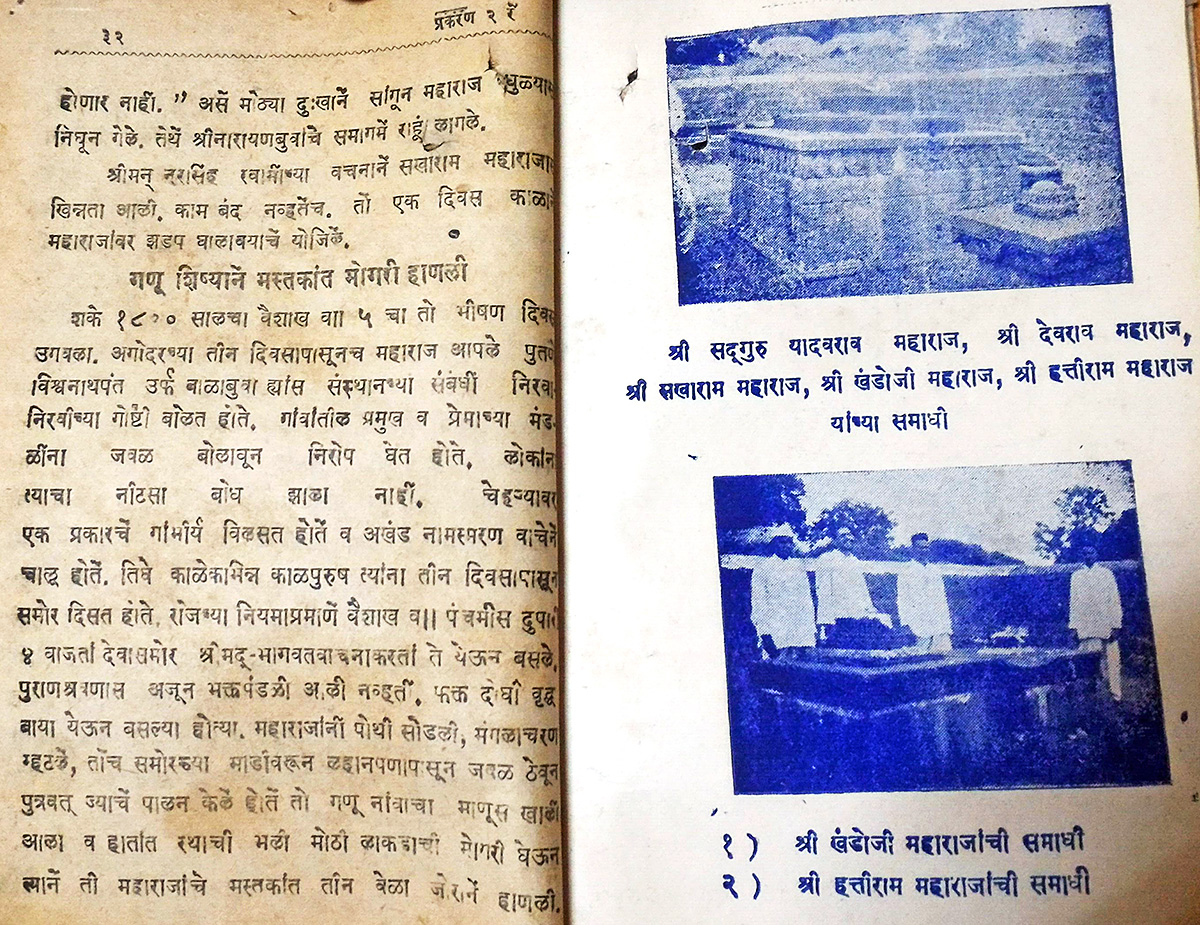 ३२
प्रकरण २ रें
होणार नाहीं. ” असें मोठ्या दुःखानें सांगून महाराज धुळ्यास
निघून गेले. तेथें श्रीनारायणबुवांचे समागमें राहूं लागले.
श्रीमन् नरसिंह स्वामींच्या वचनानें सखाराम महाराजांस
खिन्नता आली. काम बंद नव्हतेंच. तों एक दिवस काळानें
महाराजांवर झडप घालावयाचें योजिलें.
गणू शिष्यानें मस्तकांत मोगरी हाणली
शके सालचा वैशाख व॥ ५ चा तो भीषण दिवस
उगवला. अगोदरच्या तीन दिवसापासूनच महाराज आपले पुतणे
विश्वनाथपंत उर्फ बाळाबुवा ह्यांस संस्थानच्या संबंधीं निरवा-
निरवीच्या गोष्टी बोलत होते. गांवांतील प्रमुख व प्रेमाच्या मंड-
ळींना जवळ बोलावून निरोप घेत होते. लोकांना
त्याचा नीटसा बोध झाला नाहीं. चेहऱ्यावर
एक प्रकारचें गांभीर्य विलसत होतें व अखंड नामस्मरण वाचेनें
चालू होतें. तिघे काळेकभिन्न काळपुरुष त्यांना तीन दिवसापासून
समोर दिसत होते. रोजच्या नियमाप्रमाणें वैशाख व॥ पंचमीस दुपारीं
४ वाजतां देवासमोर श्रीमद्-भागवतवाचनाकरतां ते येऊन बसले.
पुराणश्रवणास अजून भक्तमंडळी आली नव्हती. फक्त दोघी वृद्ध
बाया येऊन बसल्या होत्या. महाराजांनीं पोथी सोडली, मंगळाचरण
म्हटलें, तोंच समोरच्या माडीवरून लहानपणापासून जवळ ठेवून
पुत्रवत् ज्याचें पालन केलें होतें तो गणू नांवाचा माणूस खालीं
आला व हातांत रथाची भली मोठी लाकडाची मोगरी घेऊन
त्यानें ती महाराजांचे मस्तकांत तीन वेळा जोरानें हाणली.
श्री सद्‌गुरु यादवराव महाराज, श्री देवराव महाराज,
श्री सखाराम महाराज, श्री खंडोजी महाराज, श्री हत्तीराम महाराज
यांच्या समाधी
१ ) श्री खंडोजी महाराजांची समाधी
२ ) श्री हत्तीराम महाराजांची समाधी